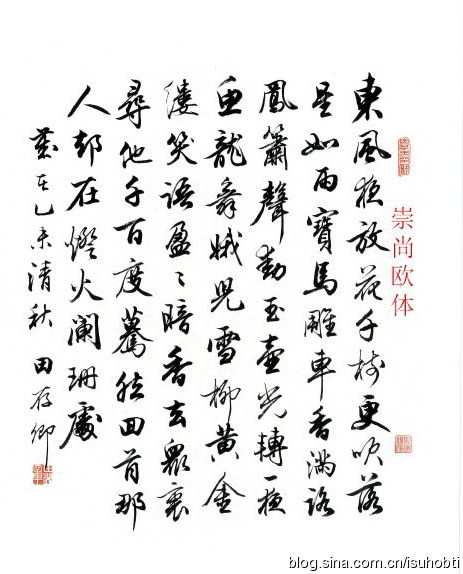 東風夜放花千樹更吹落
星如雨寶馬雕車香滿路
鳳簫聲動玉壺光轉一夜
魚龍舞娥兒雪柳黃金
縷笑語盈〻暗香去衆裏
尋他千百度驀然回首那
人却在燈火闌珊處
歲在乙未清秋 田存卿
崇尚欧体
blog.sina.com.cn/isuhobti